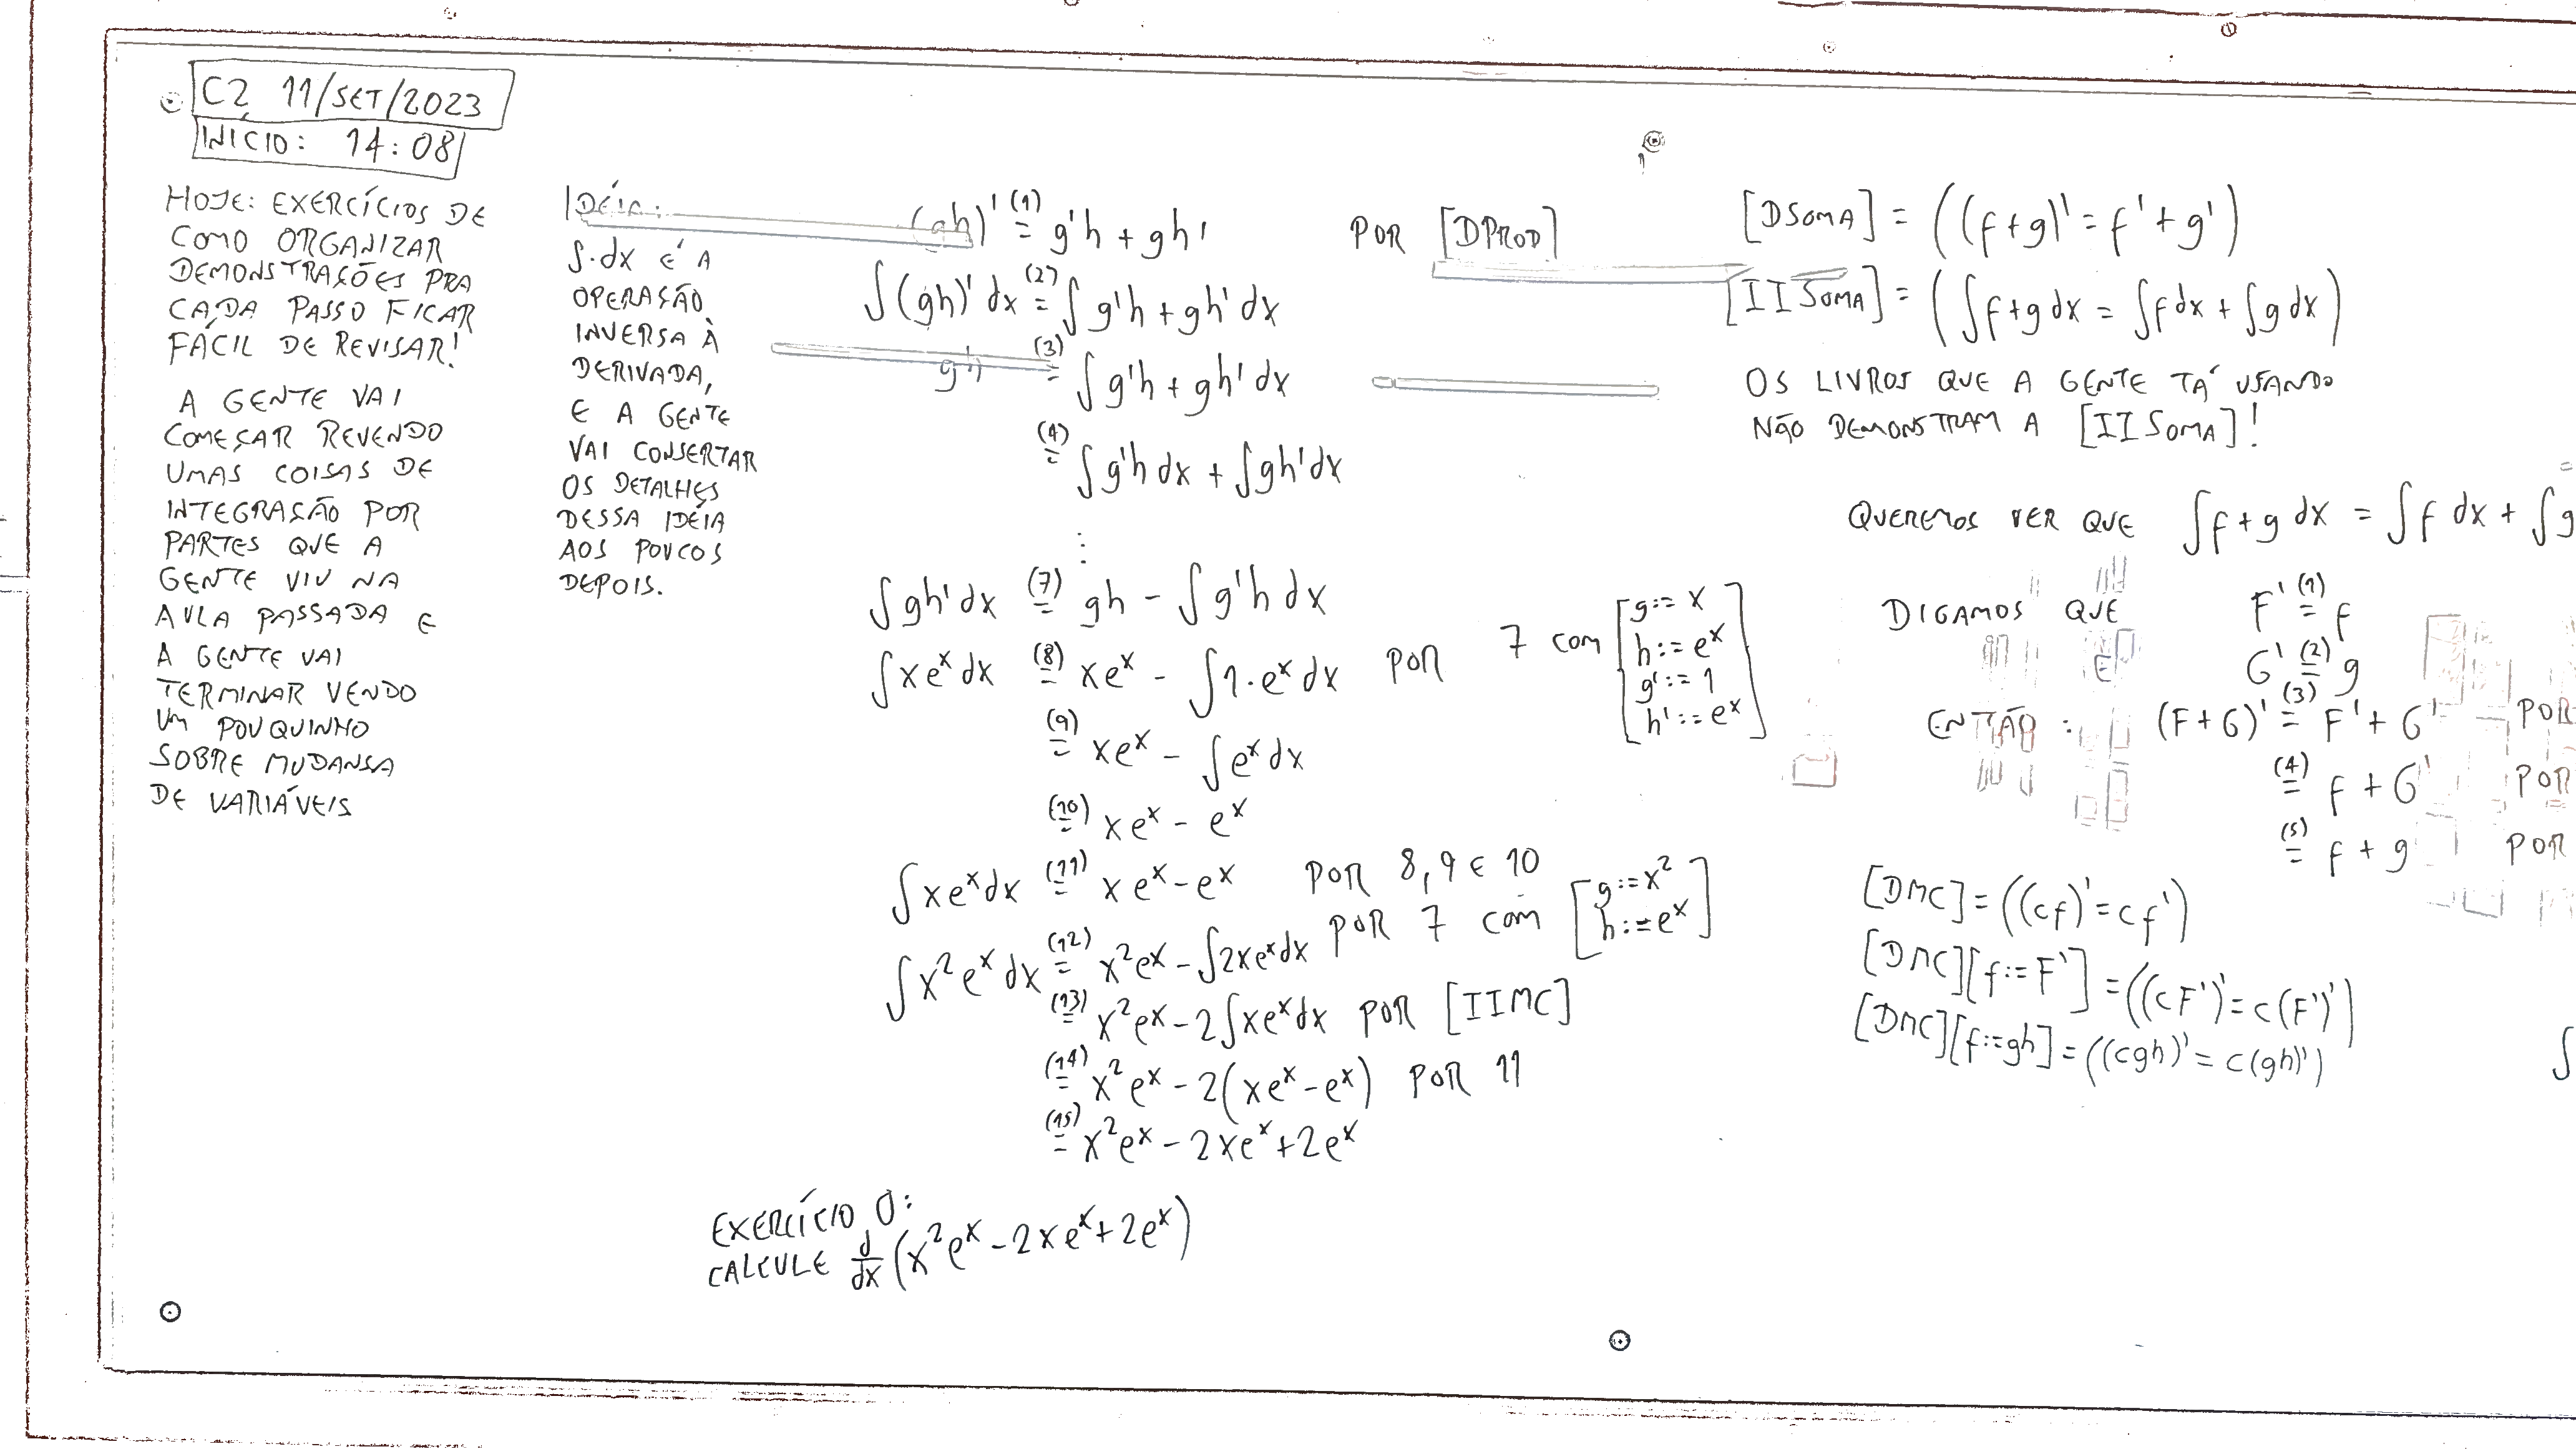 C2 11/SET/2023
INÍCIO: 14:08
HOJE: EXERCÍCIOS DE
COMO ORGANIZAR
DEMONSTRAÇÕES PRA
CADA PASSO FICAR
FÁCIL DE REVISAR!
A GENTE VAI
COMEÇAR REVENDO
UMAS COISAS DE
INTEGRAÇÃO POR
PARTES QUE A
GENTE VIU NA
AULA PASSADA E
A GENTE VAI
TERMINAR VENDO
UM POUQUINHO
SOBRE MUDANÇA
DE VARIÁVEIS
IDÉIA:
∫·dx É A
OPERAÇÃO
INVERSA À
DERIVADA,
E A GENTE
VAI CONSERTAR
OS DETALHES
DESSA IDÉIA
AOS POUCOS
DEPOIS.
(gh)' (1)= g'h + gh' POR [DPROD]
∫(gh)' dx (2)= ∫g'h + gh' dx
gh (3)= ∫g'h + gh' dx
(4)= ∫g'h dx + ∫gh' dx
⋮
∫gh' dx (7)= gh - ∫g'h dx
∫xeˣ dx (8)= xeˣ - ∫1·eˣ dx POR 7 COM [g:=x h:=eˣ g':=1 h':=eˣ]
(9)= xeˣ - ∫eˣ dx
(10)= xeˣ - eˣ
∫xeˣ dx (11)= xeˣ - eˣ POR 8, 9 E 10
∫x²eˣ dx (12)= x²eˣ - ∫2xeˣ dx POR 7 COM [g:=x² h:=eˣ]
(13)= x²eˣ - 2∫xeˣ dx POR [IIMC]
(14)= x²eˣ - 2(xeˣ - eˣ) POR 11
(15)= x²eˣ - 2xeˣ + 2eˣ
EXERCÍCIO 0:
CALCULE d/dx (x²eˣ - 2xeˣ + 2eˣ)
[DSOMA] = ((f+g)' = f' + g')
[IISOMA] = (∫f+g dx = ∫f dx + ∫g dx)
OS LIVROS QUE A GENTE TÁ USANDO
NÃO DEMONSTRAM A [IISOMA]!
QUEREMOS VER QUE ∫f+g dx = ∫f dx + ∫g
DIGAMOS QUE F' (1)= f
E G' (2)= g
ENTÃO: (F+G)' (3)= F' + G' POR
(4)= f + G' POR
(5)= f + g POR
[DMC] = ((cf)' = cf')
[DMC][f:=F'] = ((cF')' = c(F')')
[DMC][f:=gh] = ((cgh)' = c(gh)')
∫